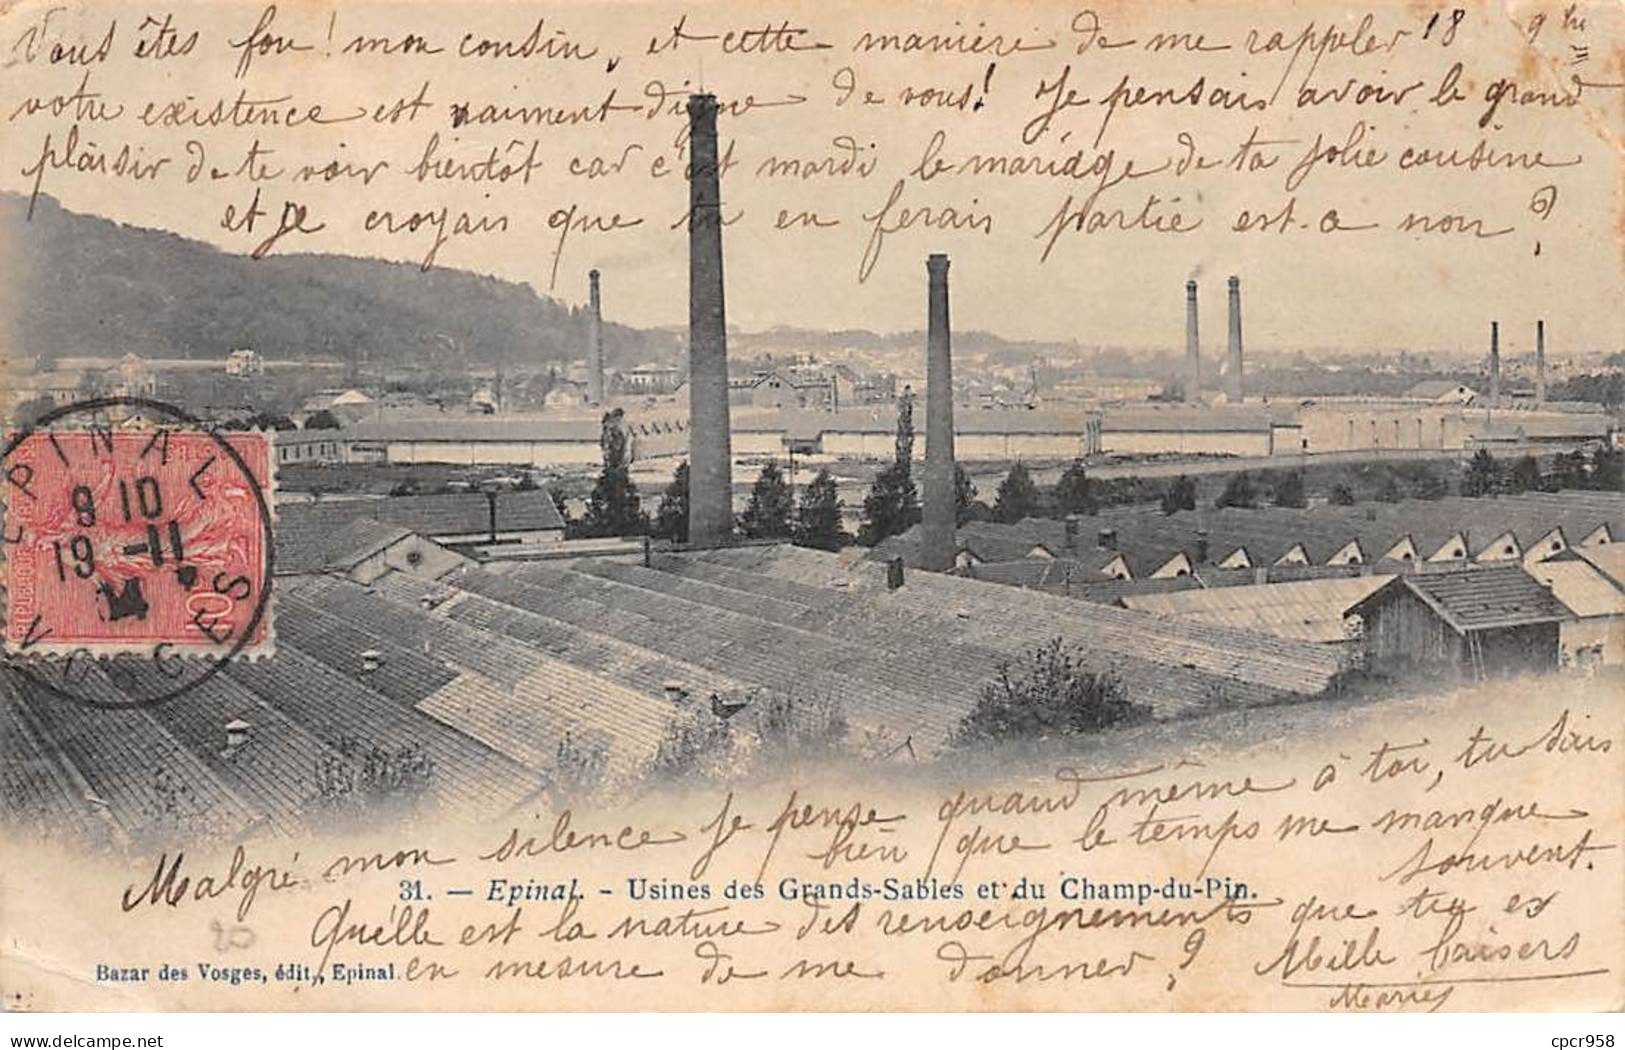 Vous êtes fou! mon cousin, et cette manière de me rappeler 18 9bre
votre existence est vraiment digne de vous! Je pensais avoir le grand
plaisir de te voir bientôt car c'est mardi le mariage de ta jolie cousine
et je croyais que tu en ferais partie est-a non?
EPINAL
8 10
19 -11
VOSGES
10
Malgré mon silence je pense quand même à toi, tu sais
bien que le temps me manque
souvent.
31. — Epinal. - Usines des Grands-Sables et du Champ-du-Pin.
Quélle est la nature des renseignements que tu es
en mesure de me donner? Mille baisers
Bazar des Vosges, édit., Epinal.
20
cpcr958